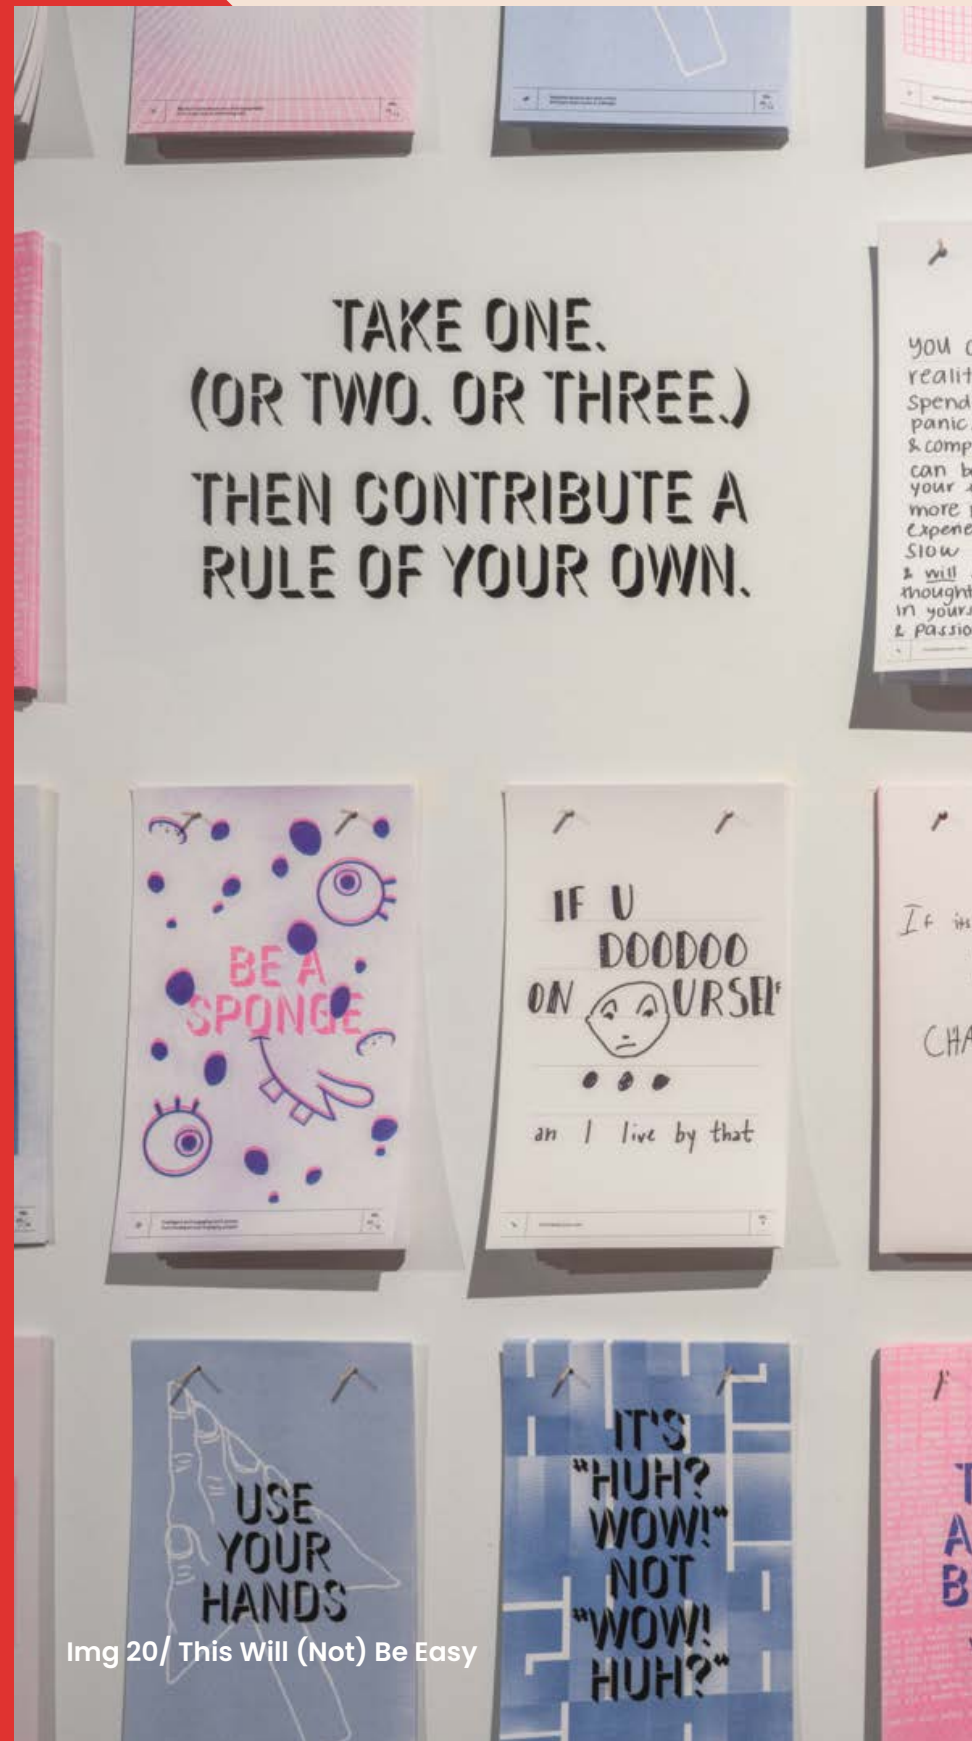 TAKE ONE.
(OR TWO. OR THREE.)
THEN CONTRIBUTE A
RULE OF YOUR OWN.
you
realit
Spend
panic
& comp
can b
your
more
experie
Slow
& will
thought
in yours
& passio
BE A
SPONGE
IF U
DOODOO
ON URSELF
an I live by that
If its
CHA
USE
YOUR
HANDS
IT'S
"HUH?
WOW!"
NOT
"WOW!
HUH?"
T
A
B
Img 20/ This Will (Not) Be Easy